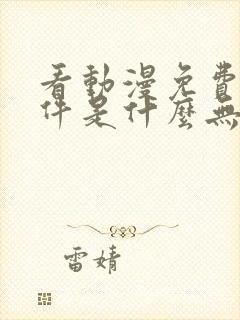 看動漫免費
件是什麼無
雷婧